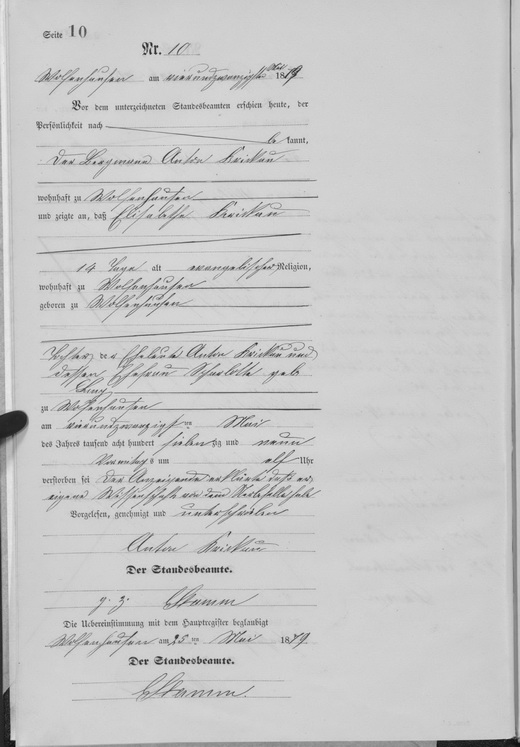 Seite 10
Nr. 10
Wolfenhausen am vierundzwanzigsten Mai 1879
Vor dem unterzeichneten Standesbeamten erschien heute, der
Persönlichkeit nach
be kannt,
der Bergmann Anton
wohnhaft zu Wolfenhausen
und zeigte an, daß Elisabethe
14 Tage alt evangelischer Religion,
wohnhaft zu Wolfenhausen
geboren zu Wolfenhausen
Tochter der Eheleute Anton und
dessen Ehefrau Scharlotte geb
zu Wolfenhausen
am vierundzwanzigsten Mai
des Jahres tausend acht hundert siebenzig und neun
Vormittags um elf Uhr
verstorben sei Der Anzeigende erklärte daß er
eigene Wissenschaft von dem Sterbefalle hab
Vorgelesen, genehmigt und unterschrieben
Anton
Der Standesbeamte.
g. z.
Die Uebereinstimmung mit dem Hauptregister beglaubigt
Wolfenhausen am 25 ten Mai 1879
Der Standesbeamte.